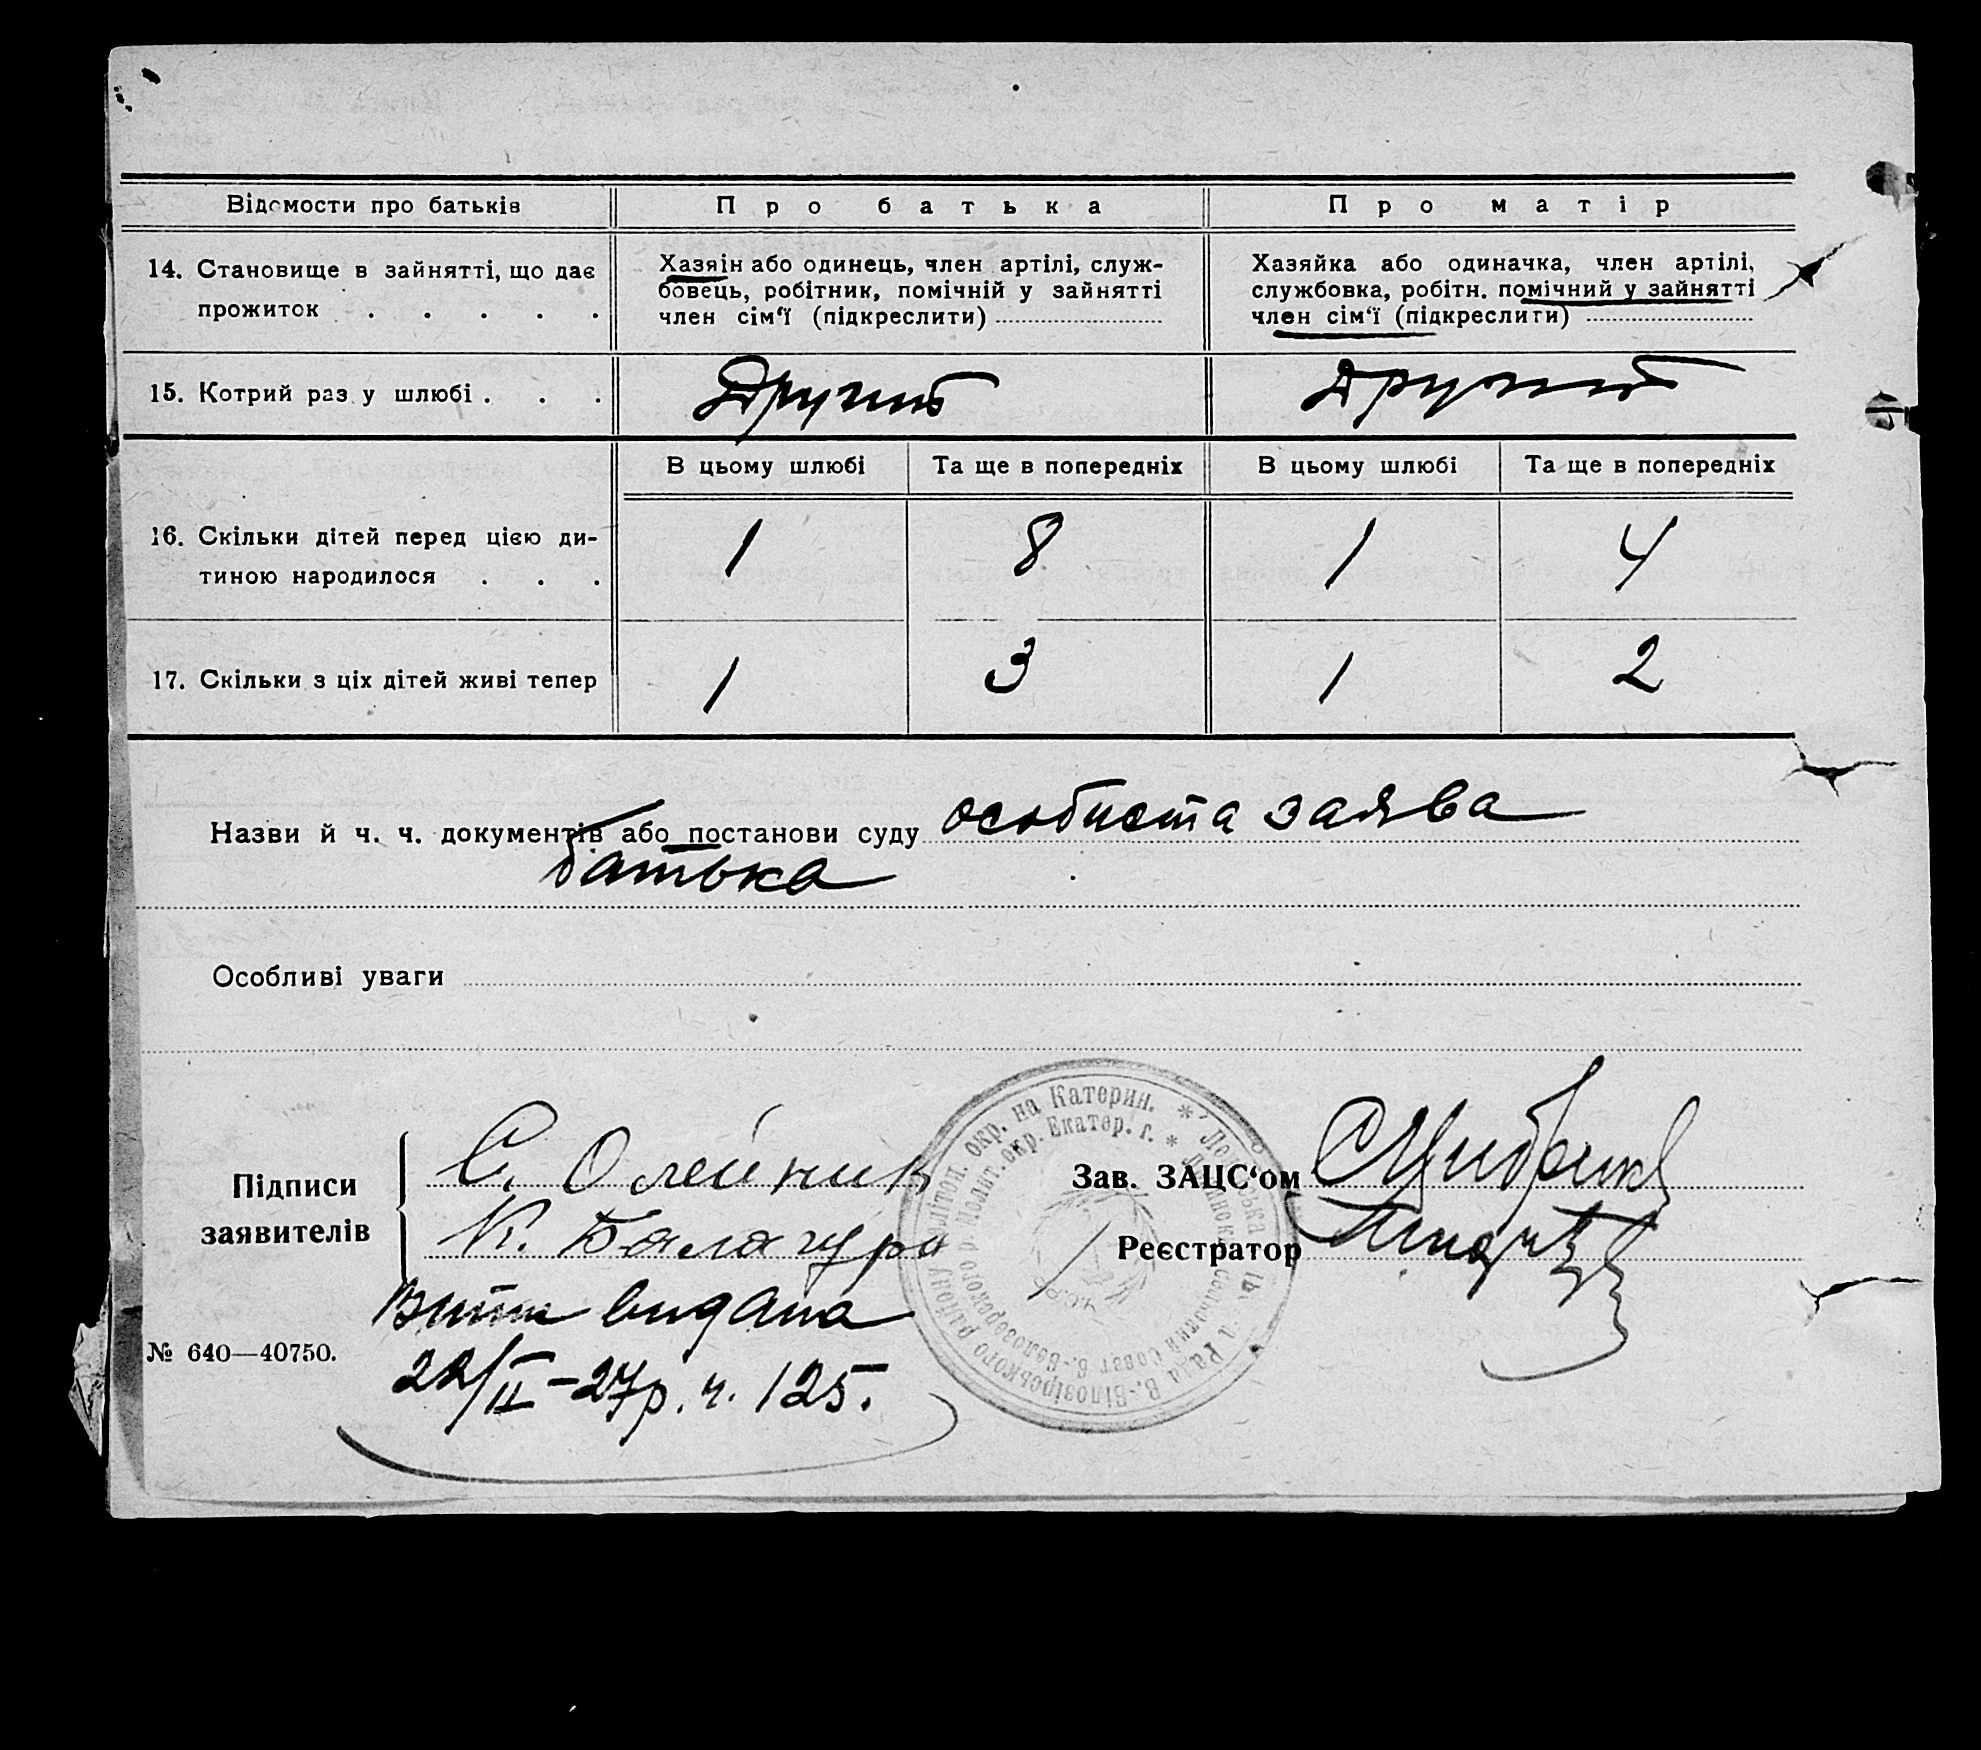 Відомости про батьків
Про батька
Про матір
14. Становище в зайнятті, що дає
прожиток . . . . .
Хазяін або одинець, член артілі, служ-
бовець, робітник, помічній у зайнятті
член сім‘ї (підкреслити)
Хазяйка або одиначка, член артілі,
службовка, робітн. помічний у зайнятті
член сім‘ї (підкреслити)
15. Котрий раз у шлюбі . . .
Другий
Другий
В цьому шлюбі
Та ще в попередніх
В цьому шлюбі
Та ще в попередніх
16. Скільки дітей перед цією ди-
тиною народилося . . .
1
8
1
4
17. Скільки з ціх дітей живі тепер
1
3
1
2
Назви й ч. ч. документів або постанови суду особиста заява
батька
Особливі уваги
Підписи
заявителів
С. Олейник
К. Балагура
Зав. ЗАЦС‘ом
Реєстратор
видана
22/II-27р. ч. 125.
№ 640—40750.
окр. на Катерин. *
окр. Екатер. г. *
Рада В.-Білозірського району